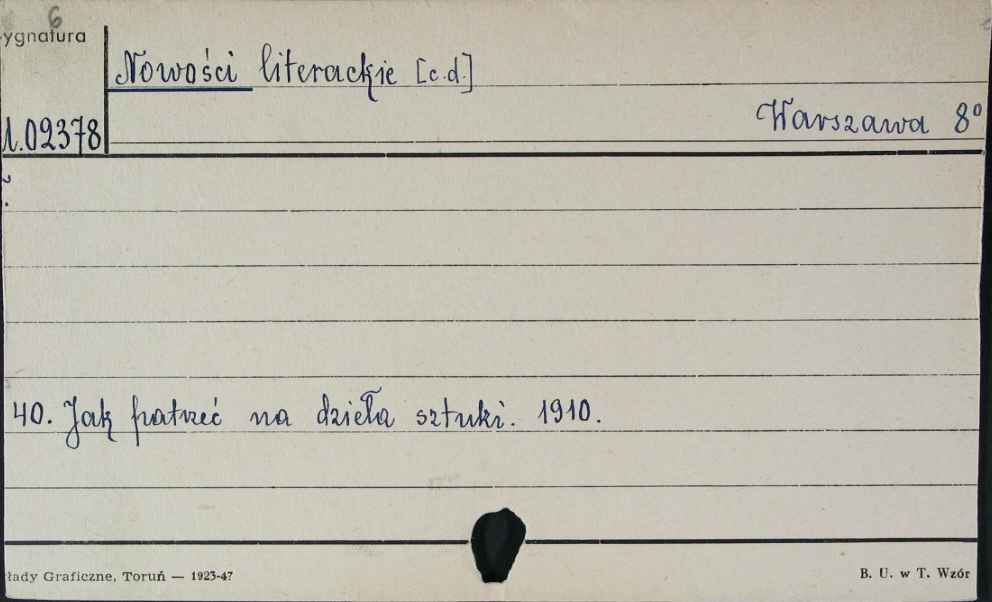 6
ygnatura
Nowości literackie [c.d.]
Warszawa 8°
1.02378
40. Jak patrzeć na dzieła sztuki. 1910.
łady Graficzne, Toruń — 1923-47
B. U. w T. Wzór